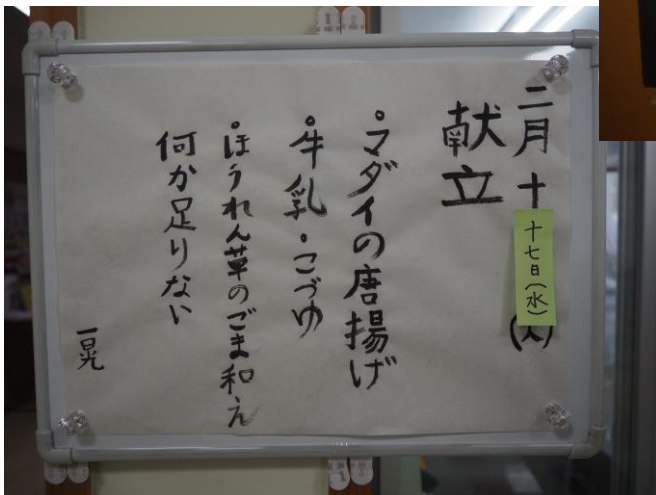 二月十
十七日(水)
献立
・マダイの唐揚げ
・牛乳・こづゆ
・ほうれん草のごま和え
何か足りない